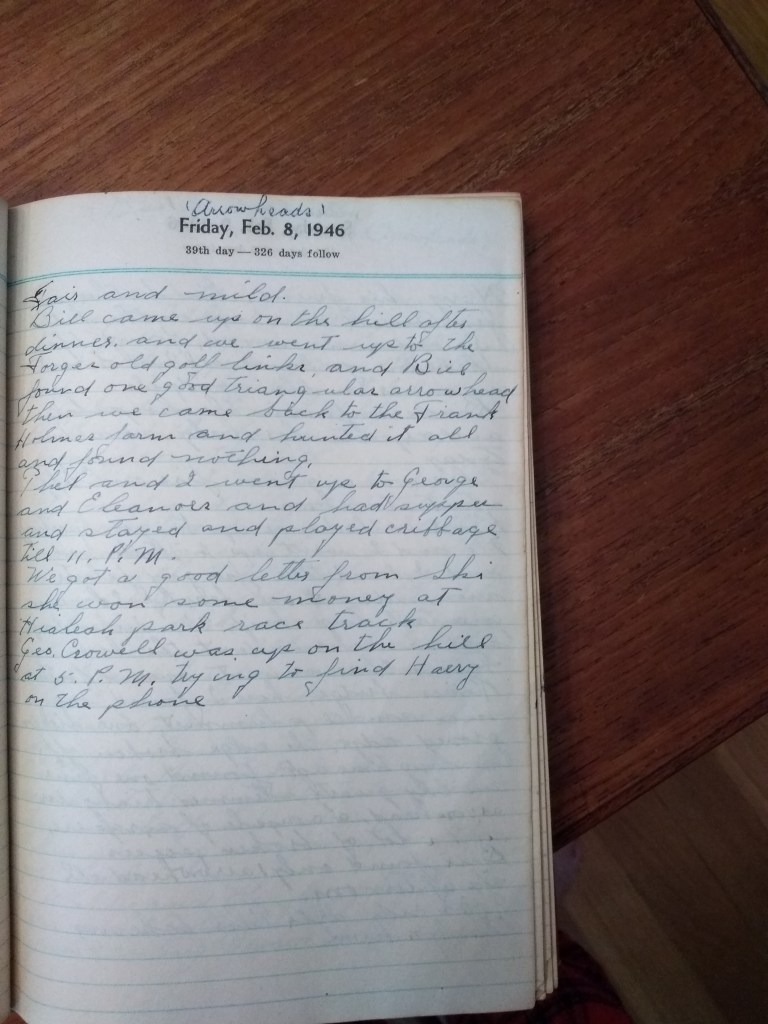 'Arrowheads'
Friday, Feb. 8, 1946
39th day — 326 days follow
Fair and mild.
Bill came up on the hill after
dinner. and we went up to the
Forger old golf links, and Bill
found one good triangular arrowhead
then we came back to the Frank
Holmes farm and hunted it all
and found nothing.
Phel and I went up to George
and Eleanors and had supper
and stayed and played cribbage
till 11. P.M.
We got a good letter from Ski
she won some money at
Hialeah park race track
Geo. Crowell was up on the hill
at 5. P.M. trying to find Harry
on the phone